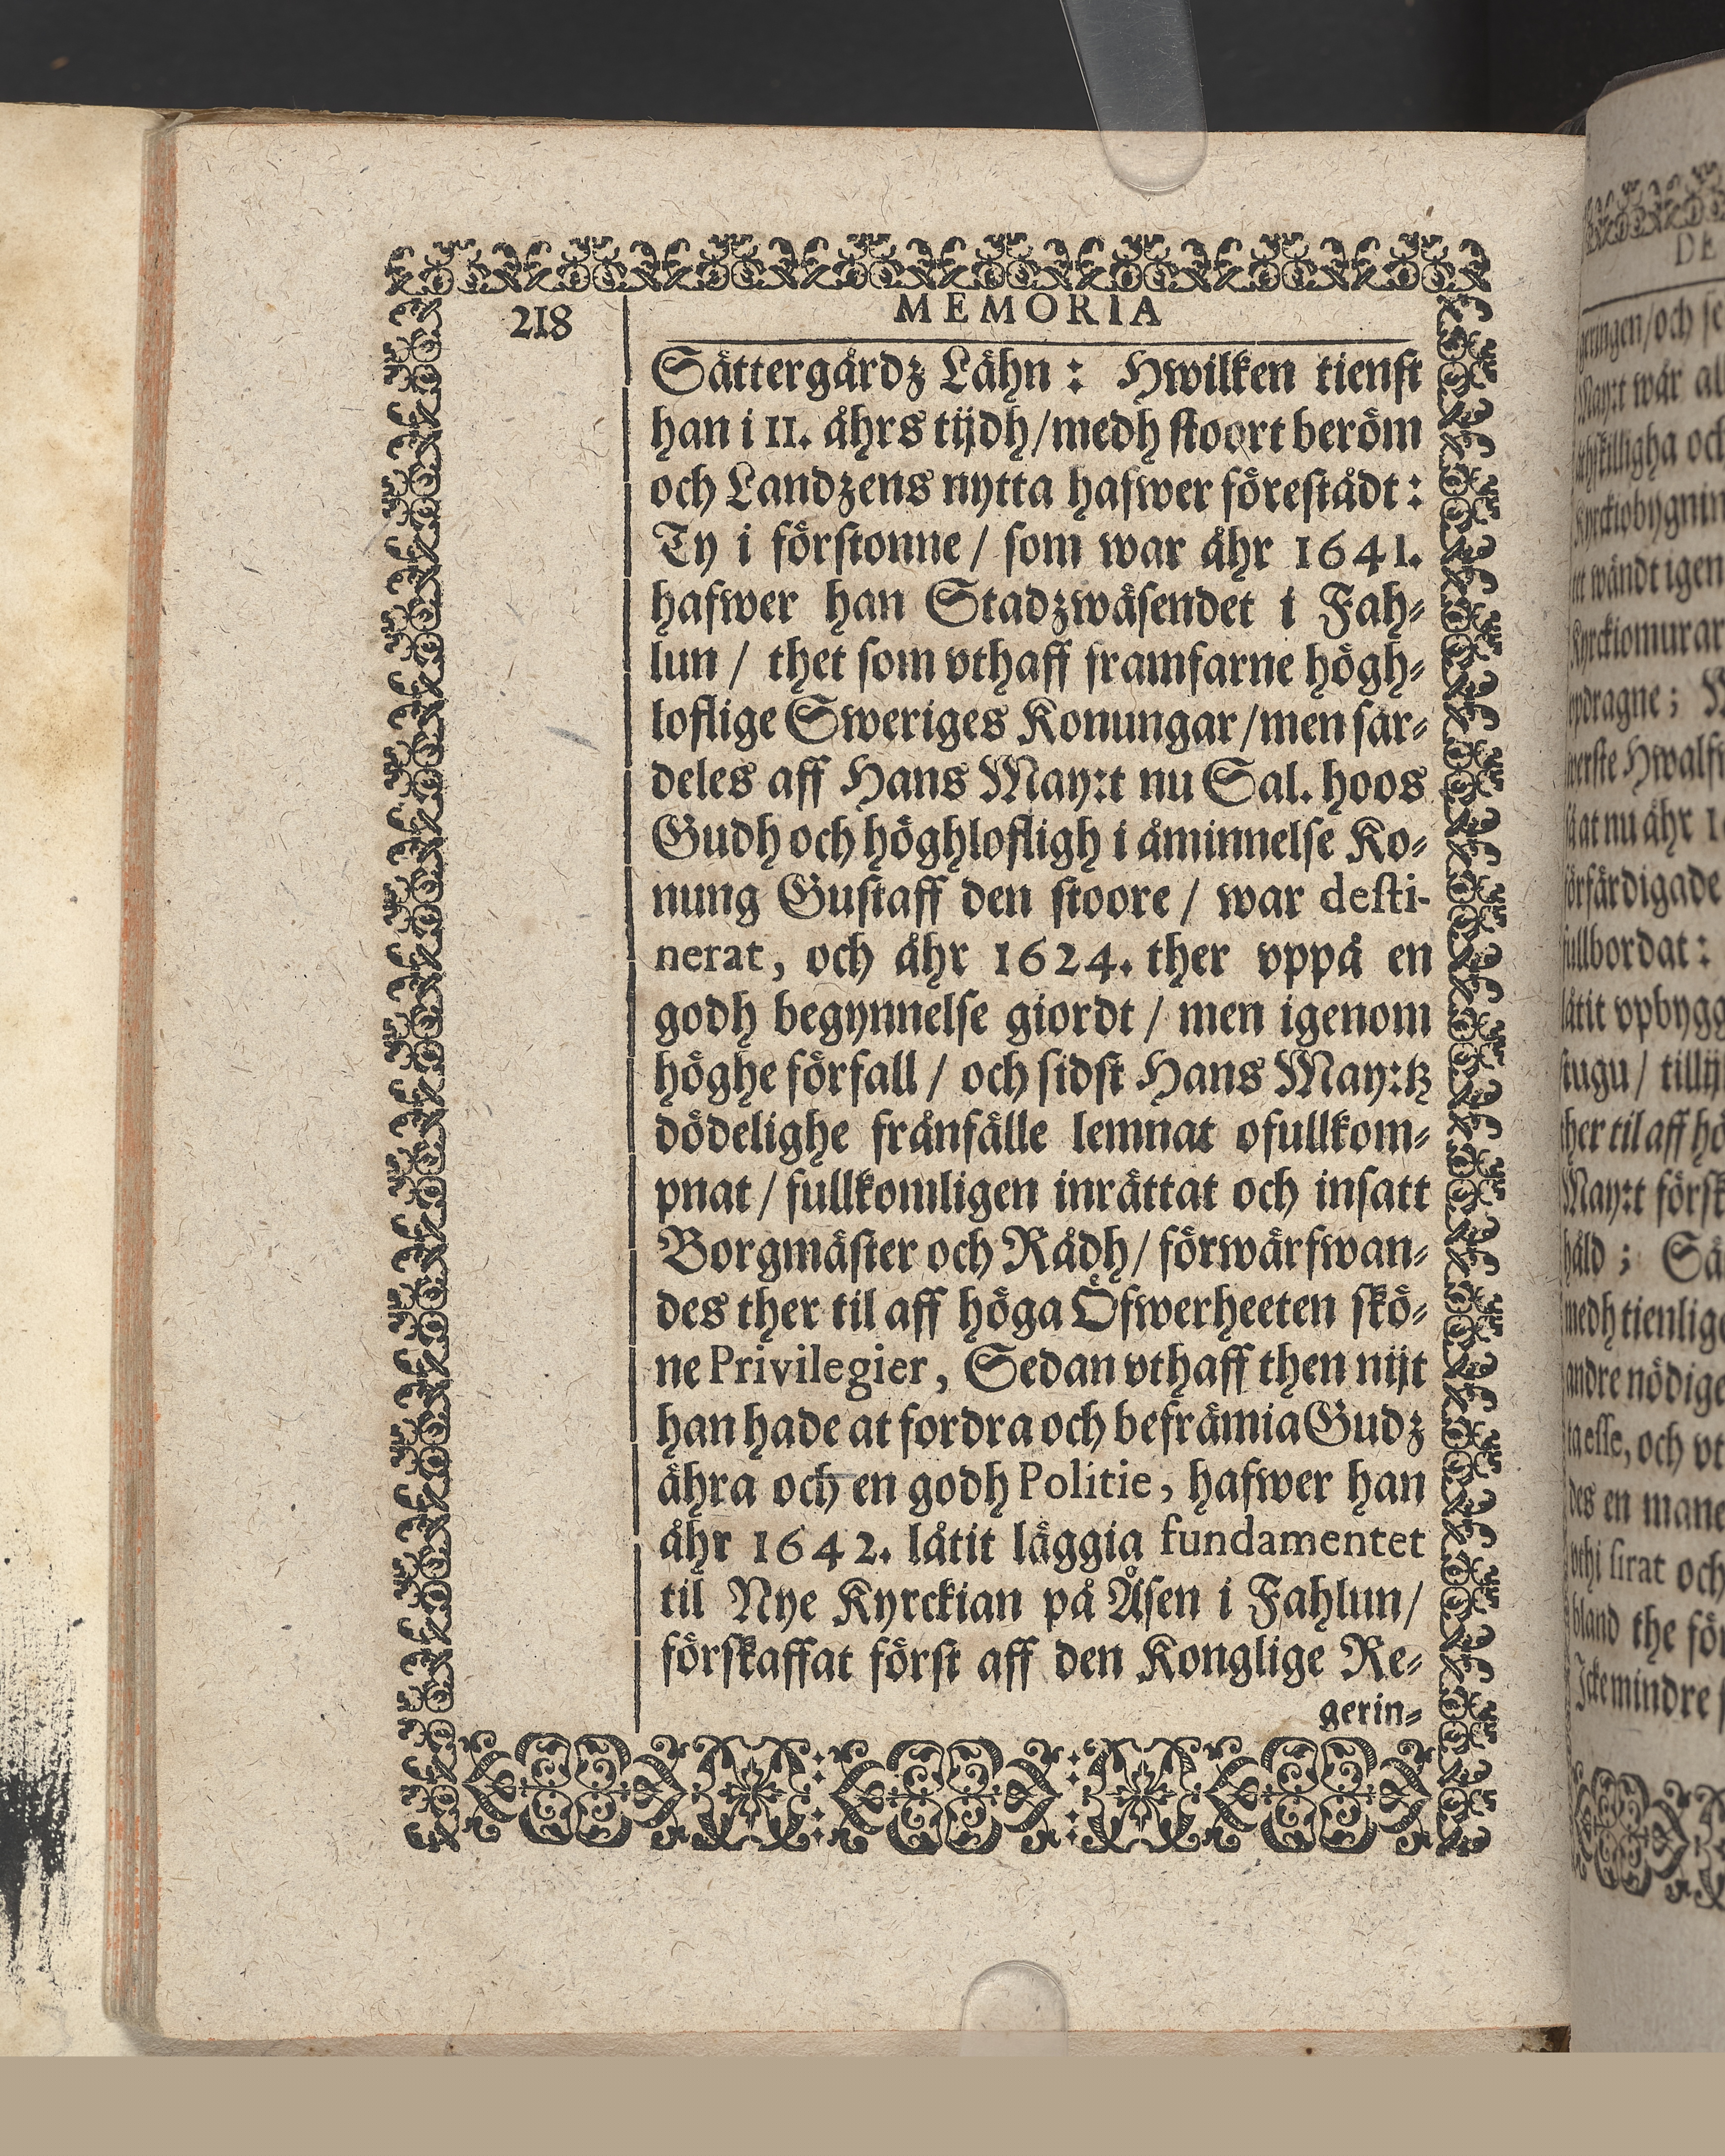 218
MEMORIA
Sättergårdz Lähn : Hwilken tienst
han i 11. åhrs tijdh/medh stoort beröm
och Landzens nytta hafwer förestådt :
Ty i förstonne / som war åhr 1641.
hafwer han Stadzwäsendet i Fah-
lun / thet som vthaff framfarne högh-
loflige Sweriges Konungar/men sär-
deles aff Hans May:t nu Sal. hoos
Gudh och höghlofligh i åminnelse Ko-
nung Gustaff den stoore / war desti-
nerat, och åhr 1624. ther vppå en
godh begynnelse giordt / men igenom
höghe förfall / och sidst Hans May:tz
dödelighe frånfälle lemnat ofullkom-
pnat / fullkomligen inrättat och insatt
Borgmäster och Rådh/ förwärfwan-
des ther til aff höga Öfwerheeten skö-
ne Privilegier, Sedan vthaff then nijt
han hade at fordra och befrämia Gudz
ähra och en godh Politie, hafwer han
åhr 1642. låtit läggia fundamentet
til Nye Kyrckian på Åsen i Fahlun/
förskaffat först aff den Konglige Re-
gerin-
DE
May:t wår
Kyrckiobygnin
wändt igen
Kyrckiomurar
at nu åhr
låtit vpbygg
her til aff
May:t försk
medh tienlig
andre nödige
des en mane
sirat och
bland the
Icke mindre